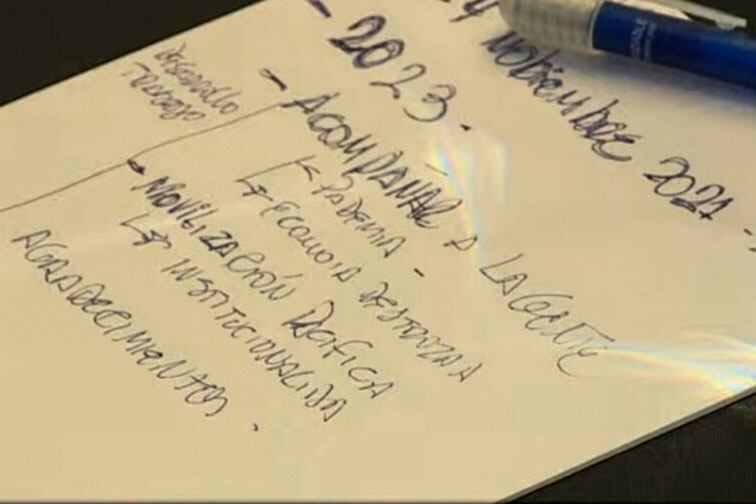 Y NOBIEMBRE 2021 -
- 2023 -
DESARROLLO
TRABAJO
- ACOMPAÑAR A LA GENTE
PADEMIA -
ECONOIA DESTRUIDA
MOVILIZACIÓN PACIFICA
INSTITUCIONALIDA
AGRADECIMIENTOS.